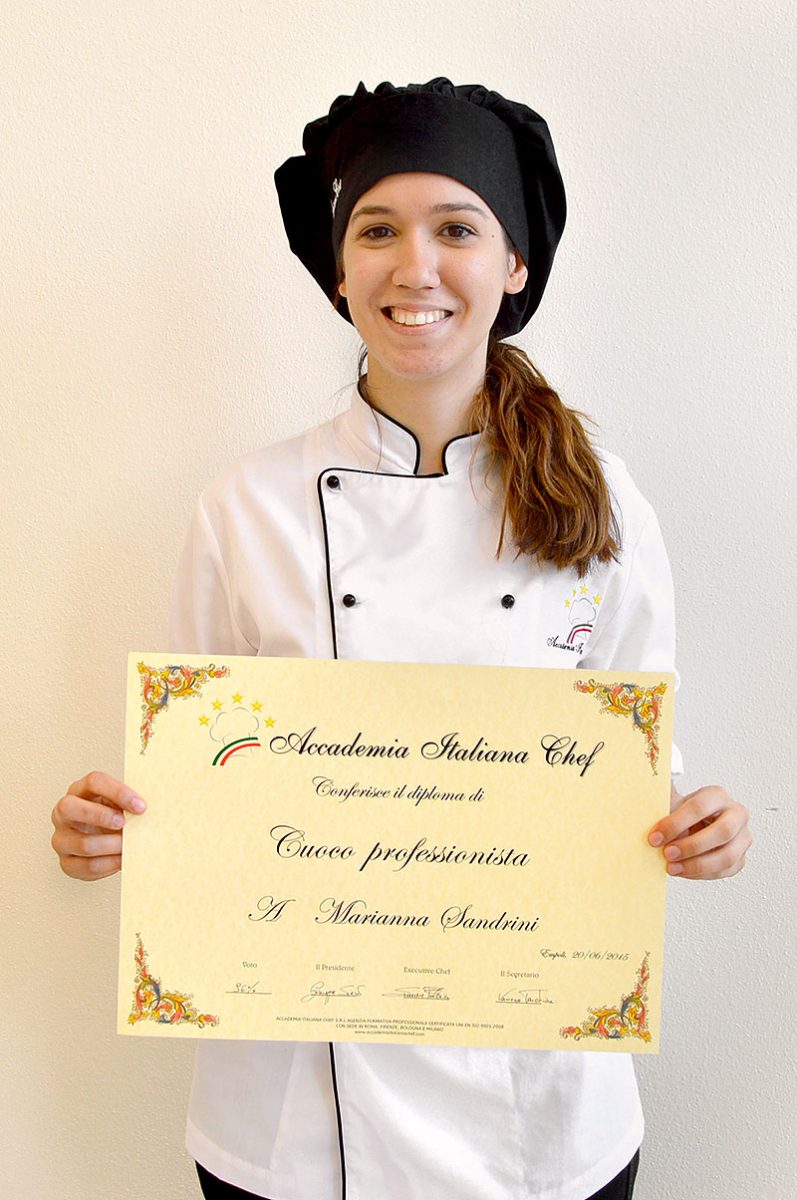 Accademia It
Accademia Italiana Chef
Conferisce il diploma di
Cuoco professionista
A Marianna Sandrini
Empoli, 20/06/2015
Voto Il Presidente Executive Chef Il Segretario
96%
ACCADEMIA ITALIANA CHEF S.R.L. AGENZIA FORMATIVA PROFESSIONALE CERTIFICATA UNI EN ISO 9001:2008
CON SEDE IN ROMA, FIRENZE, BOLOGNA E MILANO
www.accademiaitalianachef.com